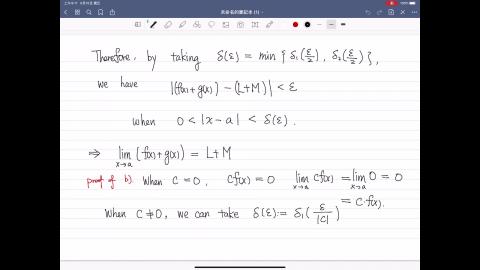 未命名的筆記本 (1)
Therefore, by taking δ(ε) = min { δ₁(ε/2), δ₂(ε/2) },
we have |(f(x)+g(x)) - (L+M)| < ε
when 0 < |x-a| < δ(ε).
⇒ lim_{x→a} (f(x)+g(x)) = L+M
proof of b). When C=0, Cf(x)=0 lim_{x→a} Cf(x) = lim_{x→a} 0 = 0
= C·f(x).
When C≠0, we can take δ(ε) := δ₁(ε/|C|)